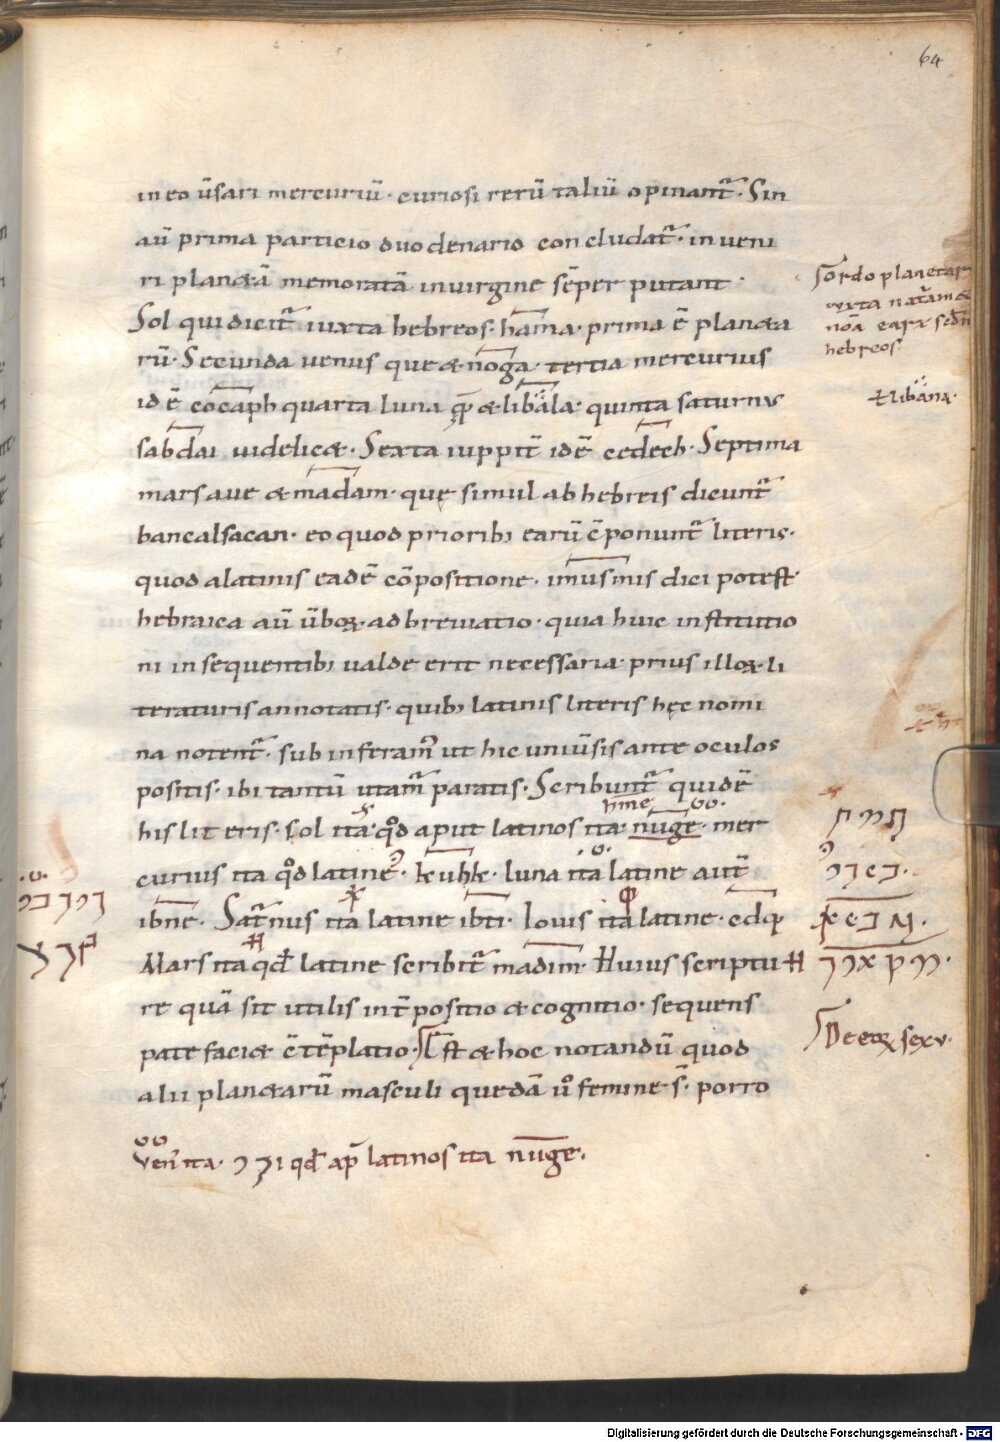 64
in eo ūsari mercuriū · curiosi rerū taliū opinant̄ · Sin
aū prima particio duodenario concludat̄ · inveni
ri planetā memoratā in virgine sēper putant ·
Sol qui dicit̄ iuxta hebreos · hama · prima ē planeta
rū · Secunda venus que & noga · tertia mercurius
idē cocaph quarta luna & libala · quinta saturnus
sabdai videlic& · Sexta iuppit̄ idē cedech · Septima
mars ave & madam · quę simul ab hebreis dicunt̄
bancalsacan · eo quod priorib; earū c̄ponunt̄ literis ·
quod a latinis eadē cōpositione · imusmis dici potest ·
hebraica aū ūboꝝ · ad breviatio · quia huic institutio
ni in sequentib; valde erit necessaria · prius illoꝝ · li
teraturis annotatis · quib; latinis literis hęc nomi
na notent̄ · sub inferam̄ ut hic univ̄sis ante oculos
positis · ibi tantū utam̄ paratis · Scribunt̄ quidē
hme
his literis · sol ita · qd̄ aput latinos ita · nuge · mer
curius ita qd̄ latine · kuhk · luna ita latine aut̄
ibne · Sat̄nus ita latine ibti · Iovis ita latine · edq
Mars ita qd̄ latine scribit̄ madim · Huius scriptu
re quā sit utilis int̄positio & cognitio · sequens
patefaci& c̄tēplatio · Est & hoc notandū quod
alii planetarū masculi quedā ů femine · s̄ · porro
ven̄ ita · qd̄ ap̄ latinos ita nuge ·
ordo planetar
iuxta nat̄am &
noā earꝝ sed̄m
hebreos ·
ł libana ·
De eoꝝ sexu ·
Digitalisierung gefördert durch die Deutsche Forschungsgemeinschaft - DFG